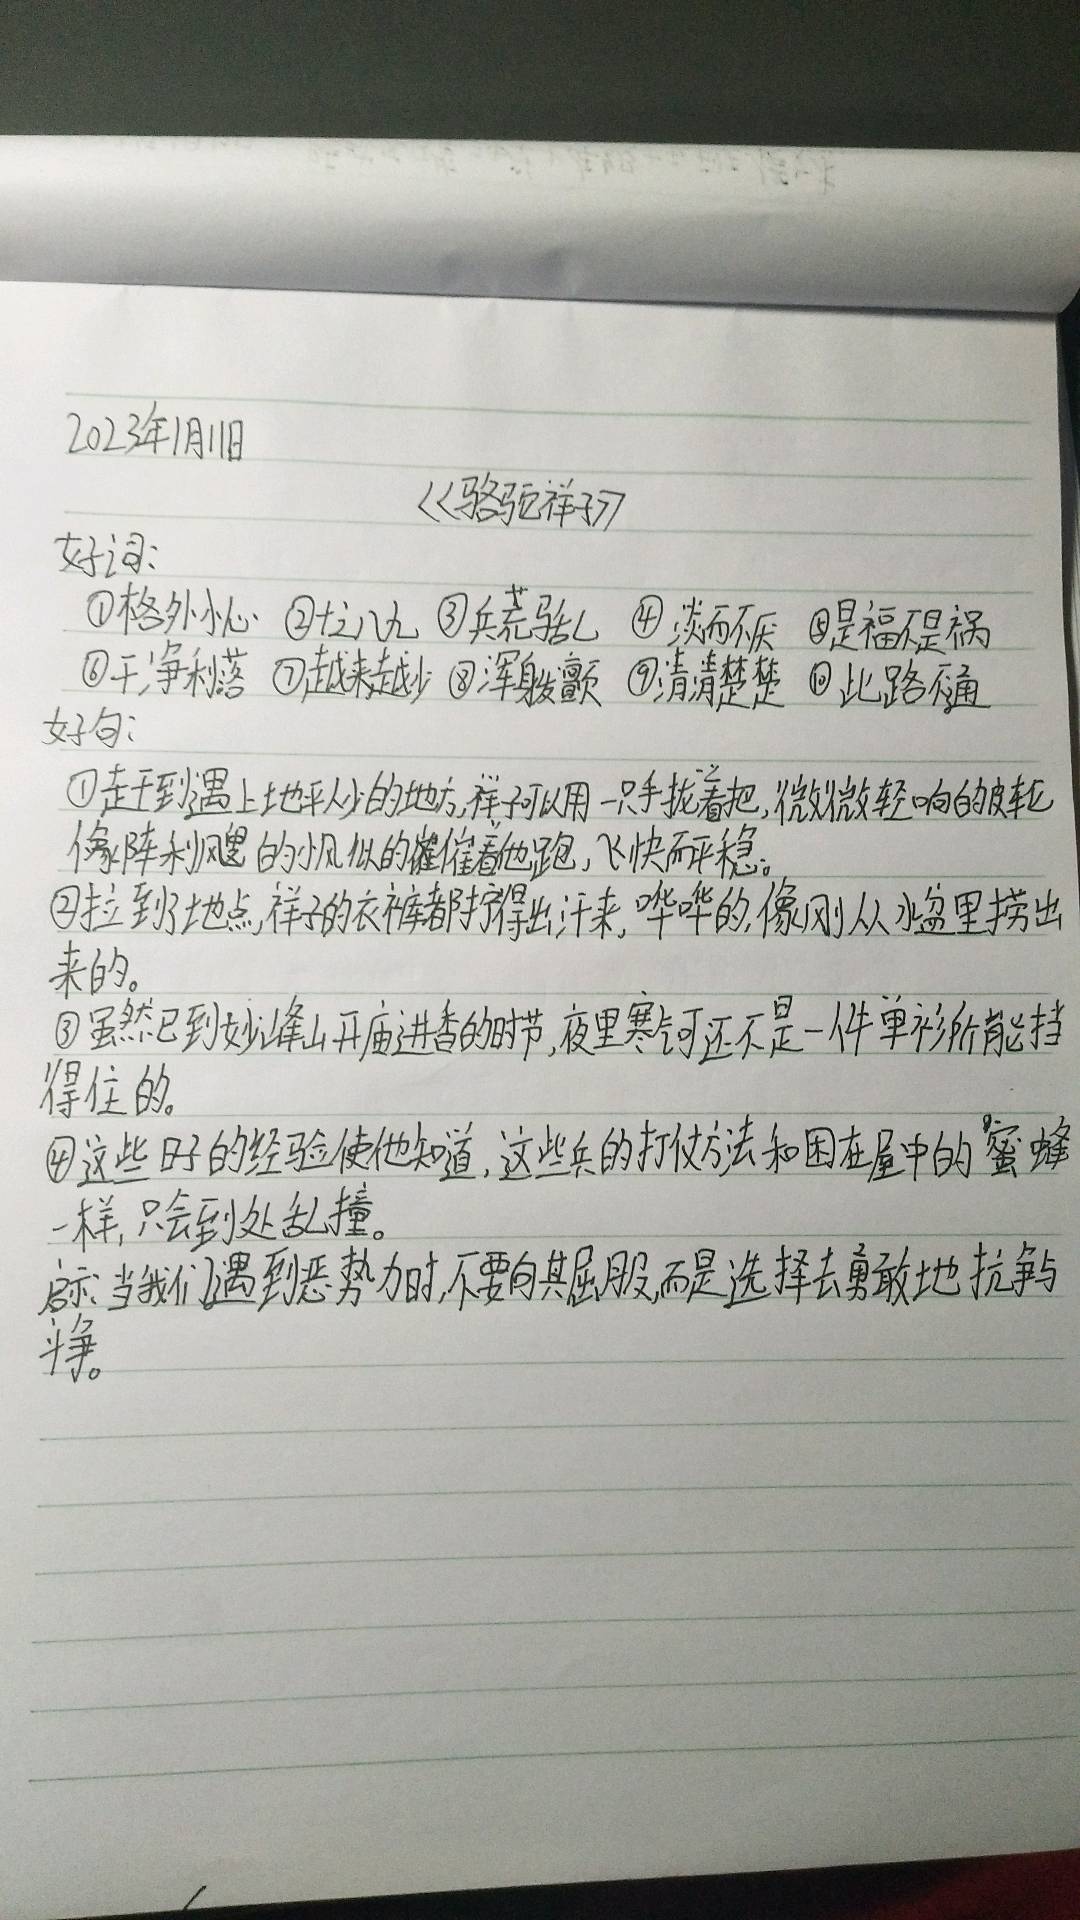 2023年1月11日
《骆驼祥子》
好词:
①格外小心 ②十之八九 ③兵荒马乱 ④淡而不厌 ⑤是福不是祸
⑥干净利落 ⑦越来越少 ⑧浑身发颤 ⑨清清楚楚 ⑩此路不通
好句:
①走到遇上地平人少的地方,祥子可以用一只手拢着把,微微轻响的皮轮
像阵利飕的小风似的催着他跑,飞快而平稳。
②拉到了地点,祥子的衣裤都拧得出汗来,哗哗的,像刚从水盆里捞出
来的。
③虽然已到妙峰山开庙进香的时节,夜里寒气可还不是一件单衫所能挡
得住的。
④这些日子的经验使他知道,这些兵的打仗方法和困在屋中的蜜蜂
一样,只会到处乱撞。
启示:当我们遇到恶势力时,不要向其屈服,而是选择去勇敢地抗争与
斗争。